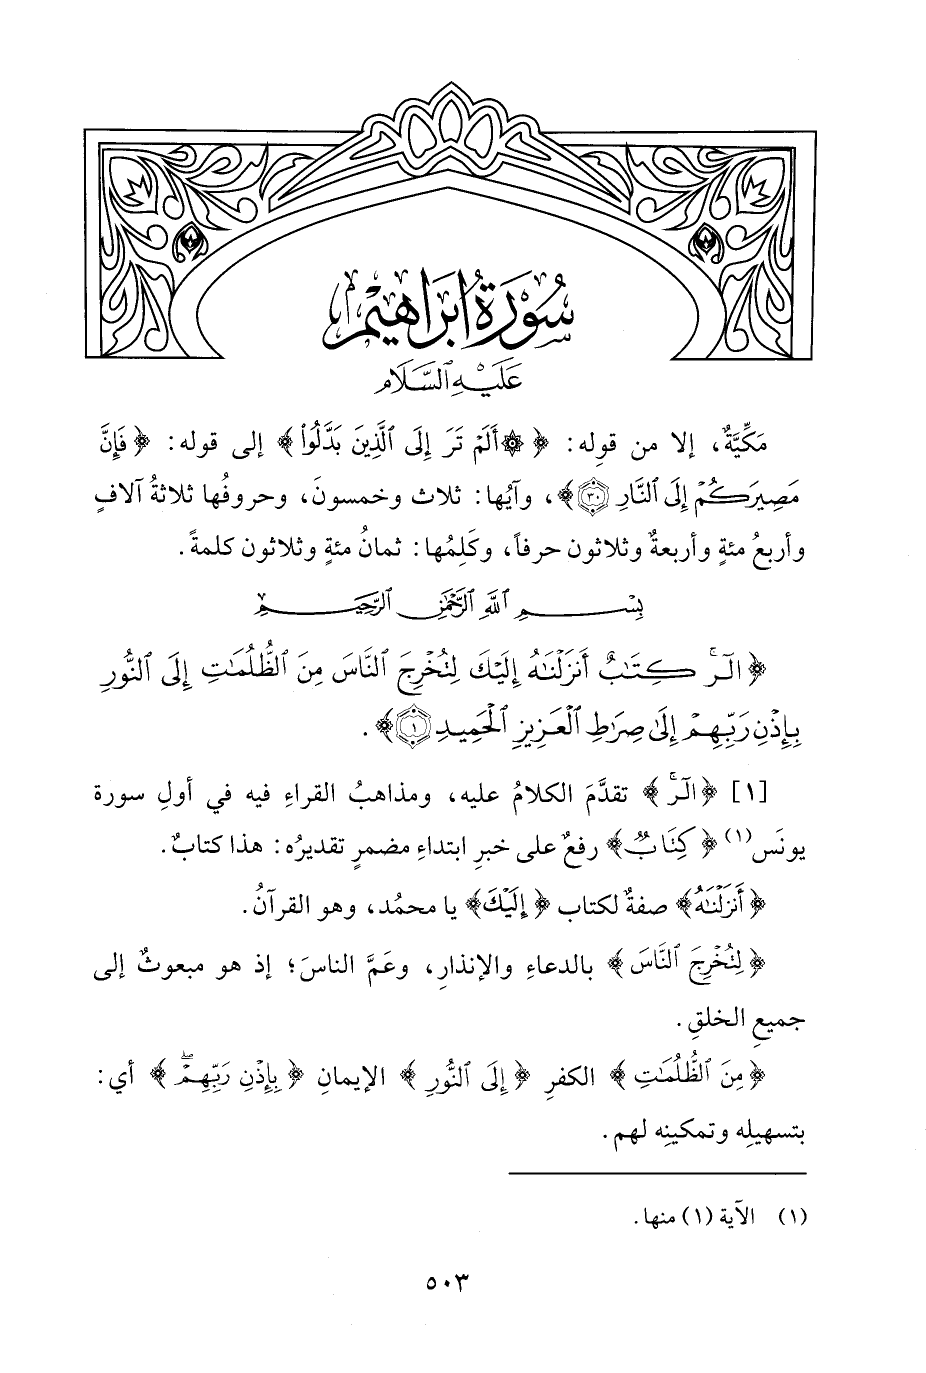 سُوْرَةُ إِبْرَاهِيْمَ
عَلَيْهِ السَّلَام
مَكِّيَّةٌ، إلا من قولِه: ﴿۞ أَلَمْ تَرَ إِلَى ٱلَّذِينَ بَدَّلُواْ﴾ إلى قوله: ﴿فَإِنَّ
مَصِيرَكُمْ إِلَى ٱلنَّارِ ٣٠﴾، وآيُها: ثلاث وخمسونَ، وحروفُها ثلاثةُ آلافٍ
وأربعُ مئةٍ وأربعةٌ وثلاثون حرفاً، وكَلِمُها: ثمانُ مئةٍ وثلاثون كلمةً.
بِسْمِ ٱللَّهِ ٱلرَّحْمَٰنِ ٱلرَّحِيمِ
﴿الٓرۚ كِتَٰبٌ أَنزَلْنَٰهُ إِلَيْكَ لِتُخْرِجَ ٱلنَّاسَ مِنَ ٱلظُّلُمَٰتِ إِلَى ٱلنُّورِ
بِإِذْنِ رَبِّهِمْ إِلَىٰ صِرَٰطِ ٱلْعَزِيزِ ٱلْحَمِيدِ ١﴾.
[١] ﴿الٓرۚ﴾ تقدَّمَ الكلامُ عليه، ومذاهبُ القراءِ فيه في أولِ سورة
يونَس(١) ﴿كِتَابٌ﴾ رفعٌ على خبرِ ابتداءِ مضمرٍ تقديرُه: هذا كتابٌ.
﴿أَنزَلْنَٰهُ﴾ صفةٌ لكتاب ﴿إِلَيْكَ﴾ يا محمُد، وهو القرآنُ.
﴿لِتُخْرِجَ ٱلنَّاسَ﴾ بالدعاءِ والإنذارِ، وعَمَّ الناسَ؛ إذ هو مبعوثٌ إلى
جميعِ الخلقِ.
﴿مِنَ ٱلظُّلُمَٰتِ﴾ الكفرِ ﴿إِلَى ٱلنُّورِ﴾ الإيمانِ ﴿بِإِذْنِ رَبِّهِمْۖ﴾ أي:
بتسهيلِه وتمكينِه لهم.
(١) الآية (١) منها.
٥٠٣